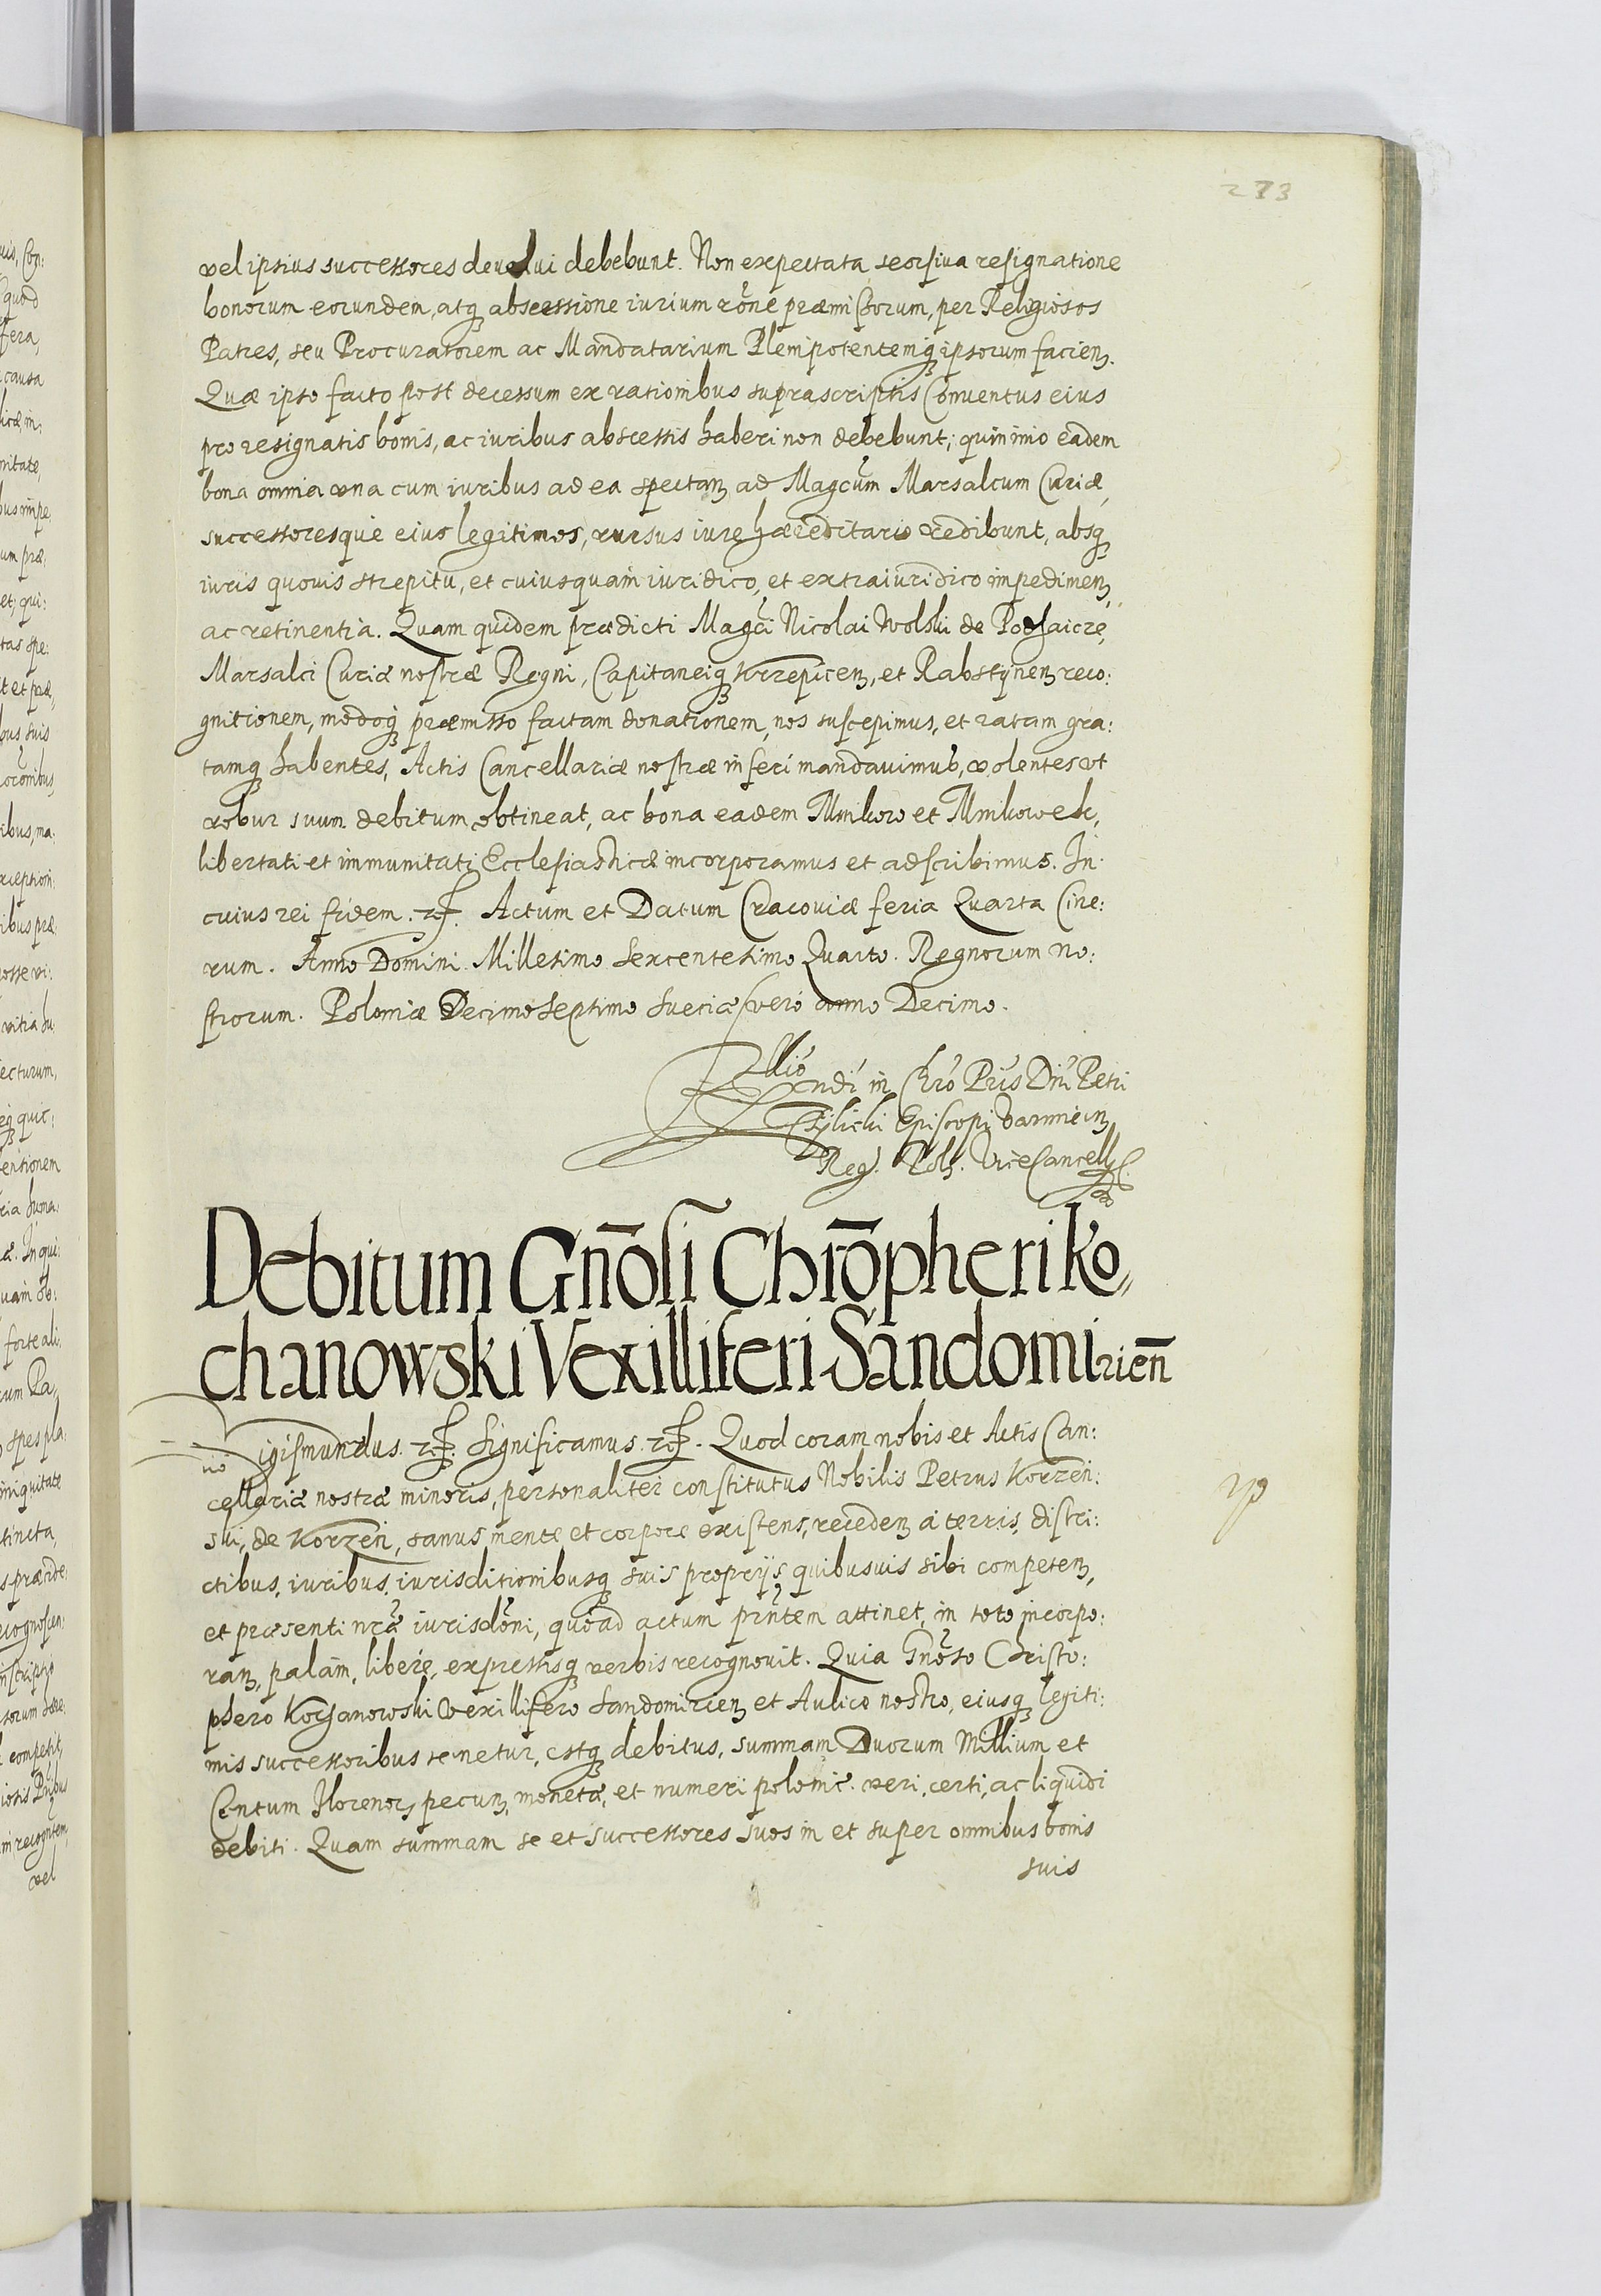 273
vel ipsius successores devolui debebunt. Non expectata seorsiua resignatione
bonorum eorundem, atq abscessione iurium rōne præmissorum, per Religiosos
Patres, seu Procuratorem ac Mandatarium Plenipotentemq ipsorum facien.
Quæ ipso facto post decessum ex rationibus suprascriptis Conuentus eius
pro resignatis bonis, ac iuribus abscessis haberi non debebunt; quin imo eadem
bona omnia vna cum iuribus ad ea spectan ad Magcum Marsalcum Curiæ,
successoresque eius legitimos, rursus iure hæreditario redibunt, absq
iuris quouis strepitu, et cuiusquam iuridico, et extraiuridico impedimen,
ac retinentia. Quam quidem prædicti Magci Nicolai Wolski de Podhaicze,
Marsalci Curiæ nostræ Regni, Capitaneiq Krzepicen, et Rabstynen reco:
gnitionem, modoq præmisso factam donationem, nos suscepimus, et ratam gra:
tamq habentes, Actis Cancellariæ nostræ inseri mandauimus, volentes vt
robur suum debitum obtineat, ac bona eadem Mnikow et Mnikowek,
libertati et immunitati Ecclesiasticæ incorporamus et adscribimus. In
cuius rei fidem. etc. Actum et Datum Cracouiæ feria Quarta Cine:
rum. Anno Domini Millesimo Sexcentesimo Quarto. Regnorum no:
strorum. Poloniæ Decimoseptimo Sueciæ vero anno Decimo.
Rllio
Rndi in Chro Pris Dni Petri
Tylicki Episcopi Varmien
Reg. Pol. ViceCancell
Debitum Gn̄osi Chrōpheri Ko„
chanowski Vexilliferi Sandomirien̄
Sigismundus. etc. Significamus. etc. Quod coram nobis et Actis Can:
cellariæ nostræ minoris, personaliter constitutus Nobilis Petrus Korzen:
ski, de Korzen, sanus mente et corpore existens, receden a terris, distri:
ctibus, iuribus, iurisditionibusq suis proprijs quibusuis sibi competen,
et præsenti nrae iurisdoni, quoad actum prntem attinet, in toto incorpo:
ran, palam, libere, expressisq verbis recognouit. Quia Gnoso Christo:
phero Kochanowski Vexillifero Sandomirien et Aulico nostro, eiusq legiti:
mis successoribus tenetur, estq debitus, summam Duorum Millium et
Centum Florenor, pecun, monetæ, et numeri polonic. veri, certi, ac liquidi
debiti. Quam summam se et successores suos in et super omnibus bonis
suis